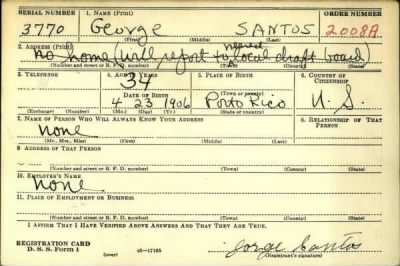 SERIAL NUMBER 1. NAME (Print) ORDER NUMBER
3770 George SANTOS 2008A
(First) (Middle) (Last)
2. ADDRESS (Print)
nearest
no home (will report to local draft board)
(Number and street or R. F. D. number) (Town) (County) (State)
3. TELEPHONE 4. AGE IN YEARS 5. PLACE OF BIRTH 6. COUNTRY OF CITIZENSHIP
34 Porto Rico U. S.
DATE OF BIRTH (Town or county)
4 23 1906
(Exchange) (Number) (Mo.) (Day) (Yr.) (State or country)
7. NAME OF PERSON WHO WILL ALWAYS KNOW YOUR ADDRESS 8. RELATIONSHIP OF THAT PERSON
None
(Mr., Mrs., Miss) (First) (Middle) (Last)
9. ADDRESS OF THAT PERSON
(Number and street or R. F. D. number) (Town) (County) (State)
10. EMPLOYER'S NAME
None
11. PLACE OF EMPLOYMENT OR BUSINESS
(Number and street or R. F. D. number) (Town) (County) (State)
I AFFIRM THAT I HAVE VERIFIED ABOVE ANSWERS AND THAT THEY ARE TRUE.
REGISTRATION CARD
D. S. S. Form 1 (over) 16—17105 Jorge Santos
(Registrant's signature)